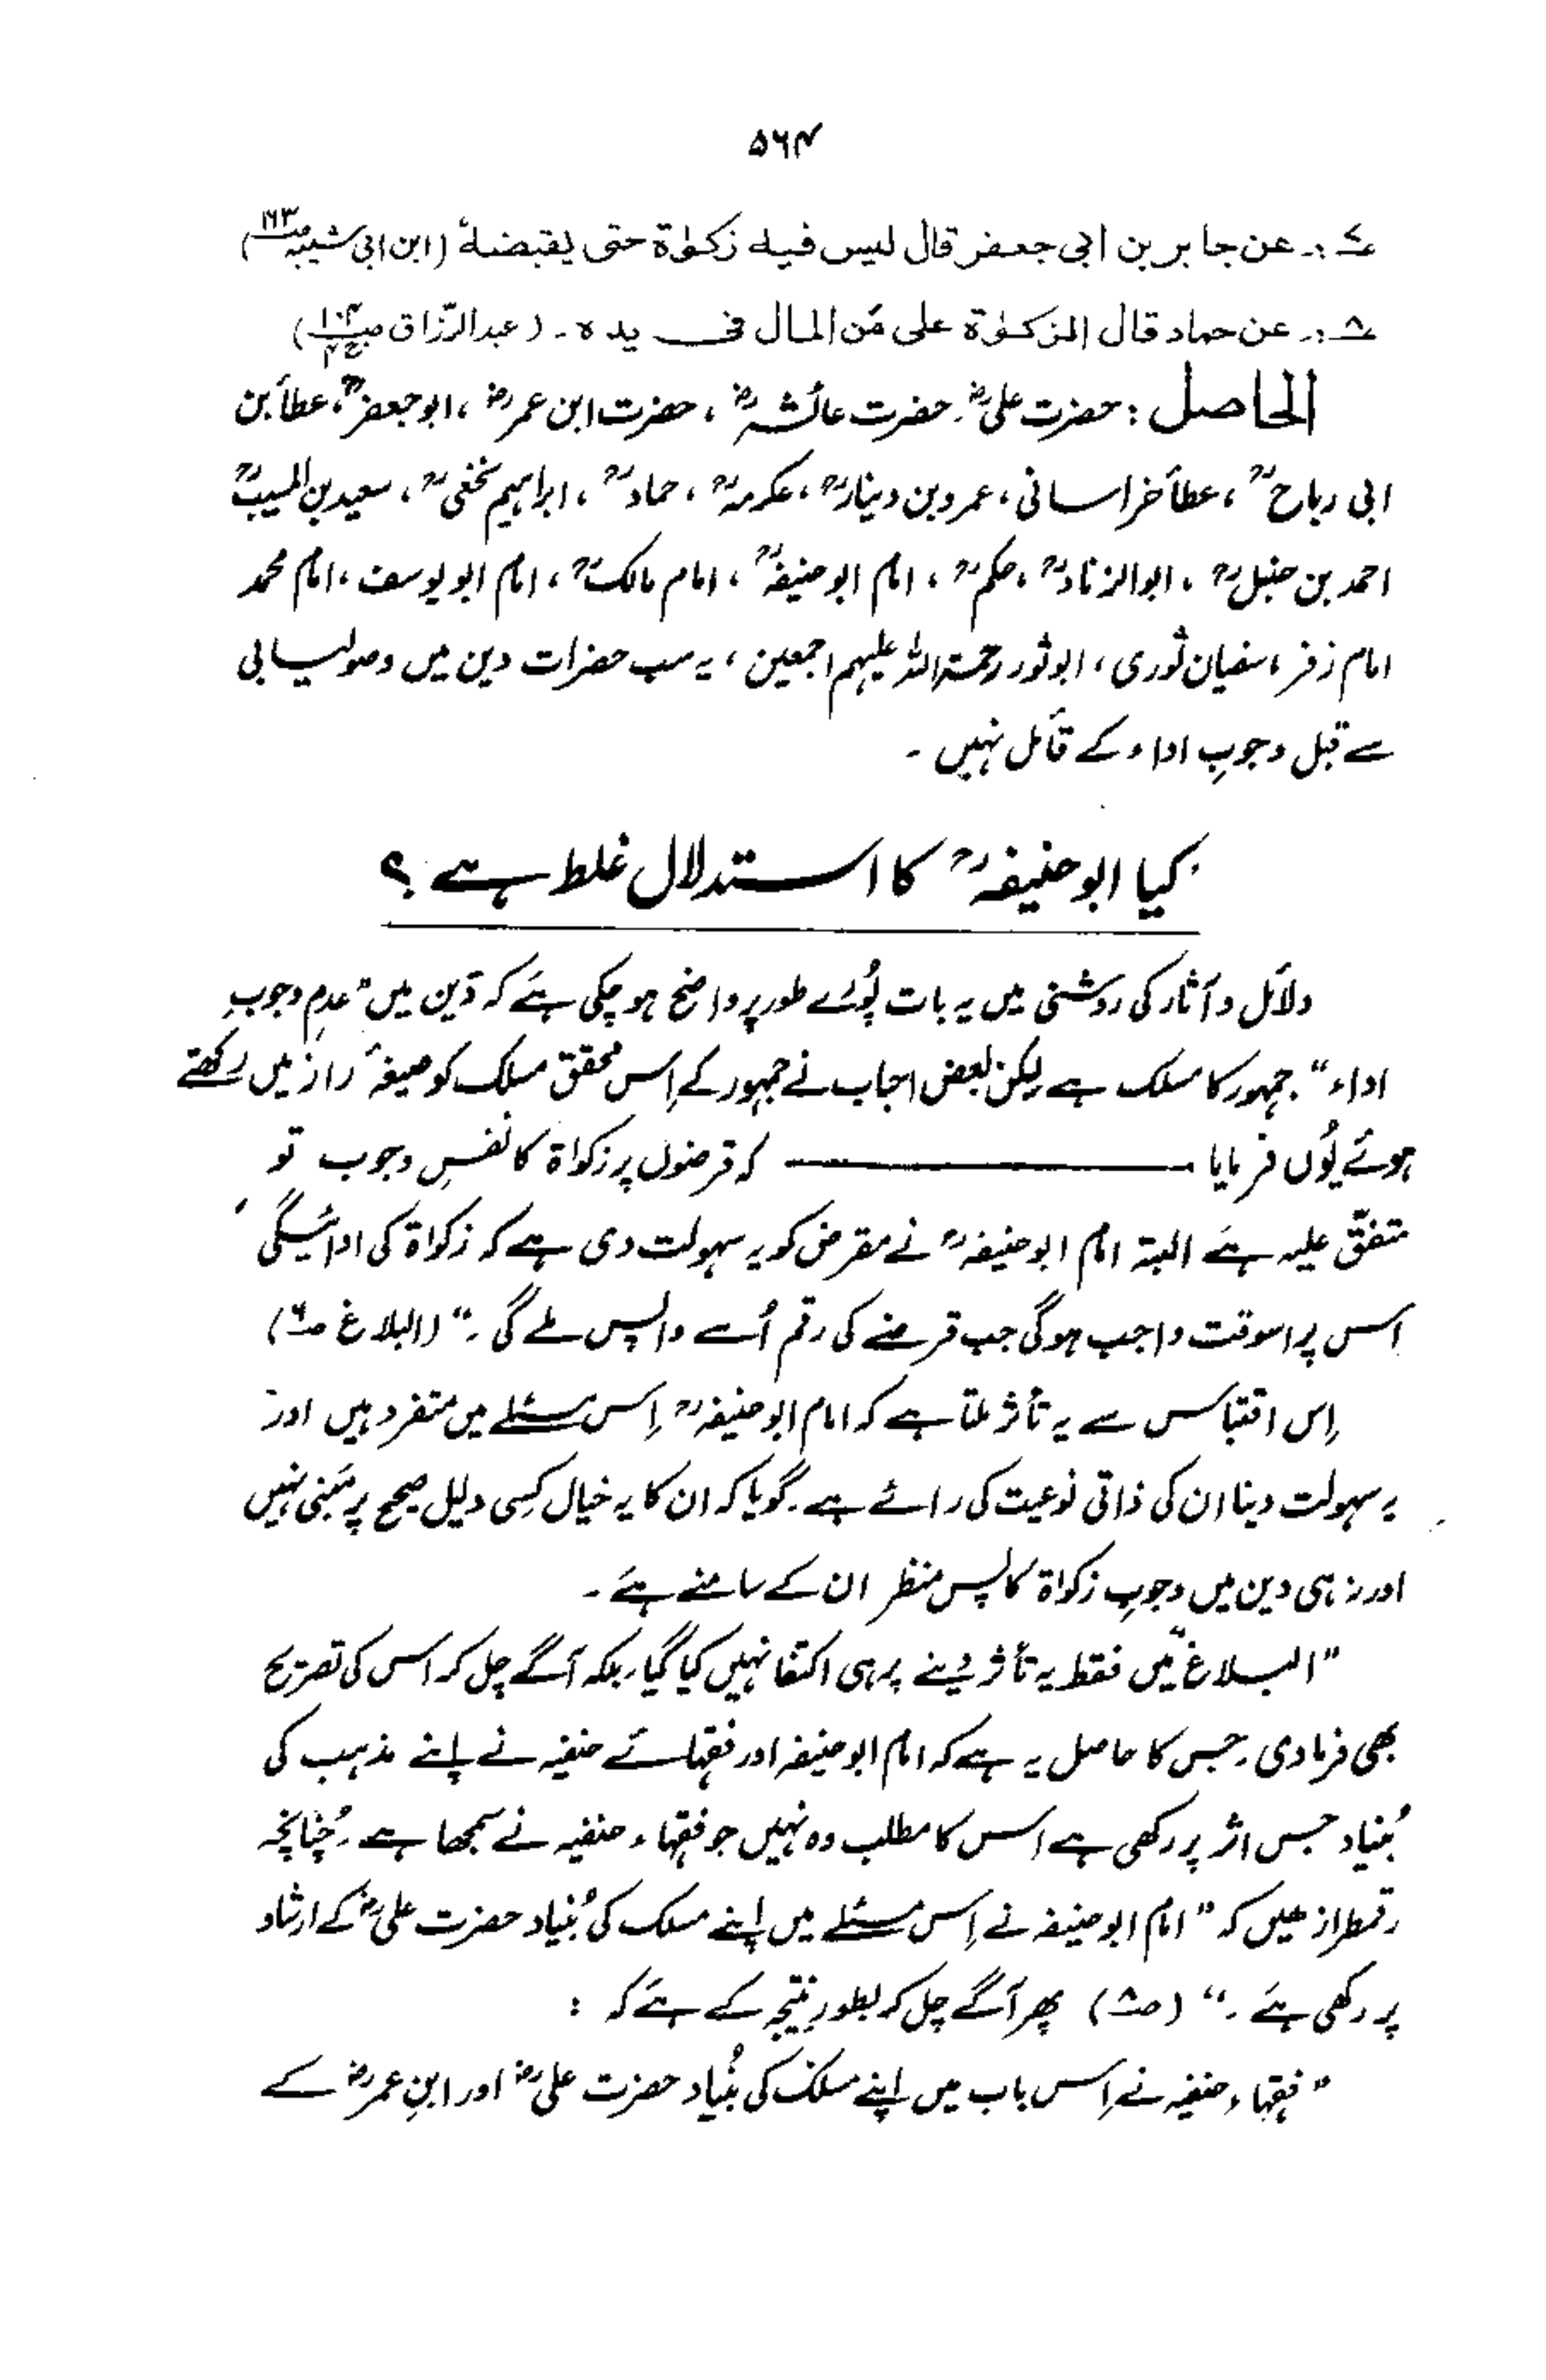 ۵۶۴
۷ :۔ عن جابر بن ابی جعفر قال لیس فیه زکوٰة حتی یقبضهٗ (ابن ابی شیبہ ص۱۶۳)
۸ :۔ عن حماد قال الزکوٰة علی مَن المال فی یده ۔ (عبدالرّزاق ص۱۰۴ ج۴)
الحاصل : حضرت علیؓ ۔ حضرت عائشہؓ ، حضرت ابن عمرؓ ، ابو جعفرؒ ، عطأ بن
ابی رباحؒ ، عطأ خراسانی ، عمرو بن دینارؒ ، عکرمہؒ ، حمادؒ ، ابراہیم نخعیؒ ، سعید بن المسیبؒ
احمد بن حنبلؒ ، ابوالزنادؒ ، حکمؒ ، امام ابوحنیفہؒ ، امام مالکؒ ، امام ابو یوسف ، امام محمد
امام زفر ، سفیان ثوری ، ابو ثور رحمۃ اللہ علیہم اجمعین ، یہ سب حضرات دین میں وصولیابی
سے قبل وجوبِ اداء کے قائل نہیں ۔
کیا ابو حنیفہؒ کا استدلال غلط ہے ؟
دلائل و آثار کی روشنی میں یہ بات پُورے طور پر واضح ہو چکی ہے کہ دَین میں "عدمِ وجوبِ
اداء" جمہور کا مسلک ہے لیکن بعض احباب نے جمہور کے اِس محقق مسلک کو صیغۂ راز میں رکھتے
ہوئے یُوں فرمایا ـــــــــــــــ کہ قرضوں پر زکواۃ کا نفسِ وجوب تو
متفق علیہ ہے البتہ امام ابوحنیفہؒ نے مقرض کو یہ سہولت دی ہے کہ زکواۃ کی ادائیگی
اس پر اسوقت واجب ہوگی جب قرضے کی رقم اُسے واپس ملے گی ۔" (البلاغ ص۶)
اِس اقتباس سے یہ تأثر ملتا ہے کہ امام ابوحنیفہؒ اِس مسئلے میں متفرد ہیں اور
یہ سہولت دینا ان کی ذاتی نوعیت کی رائے ہے ۔ گویا کہ ان کا یہ خیال کِسی دلیل صحیح پر مَبنی نہیں
اور نہ ہی دین میں وجوبِ زکواۃ کا پس منظر ان کے سامنے ہے ۔
"البلاغ" میں فقط یہ تأثر دینے پر ہی اکتفا نہیں کیا گیا ، بلکہ آگے چل کر اس کی تصریح
بھی فرما دی ۔ جس کا حاصل یہ ہے کہ امام ابوحنیفہ اور فقہائے حنفیہ نے اپنے مذہب کی
بُنیاد جس اثر پر رکھی ہے اس کا مطلب وہ نہیں جو فقہاء حنفیہ نے سمجھا ہے ۔ چُنانچہ
رقمطراز ہیں کہ "امام ابوحنیفہ نے اِس مسئلے میں اپنے مسلک کی بُنیاد حضرت علیؓ کے ارشاد
پر رکھی ہے ۔" (ص۸) پھر آگے چل کر بطورِ نتیجہ کے ہے کہ :
"فقہاءِ حنفیہ نے اِس باب میں اپنے مسلک کی بُنیاد حضرت علیؓ اور ابنِ عمرؓ کے